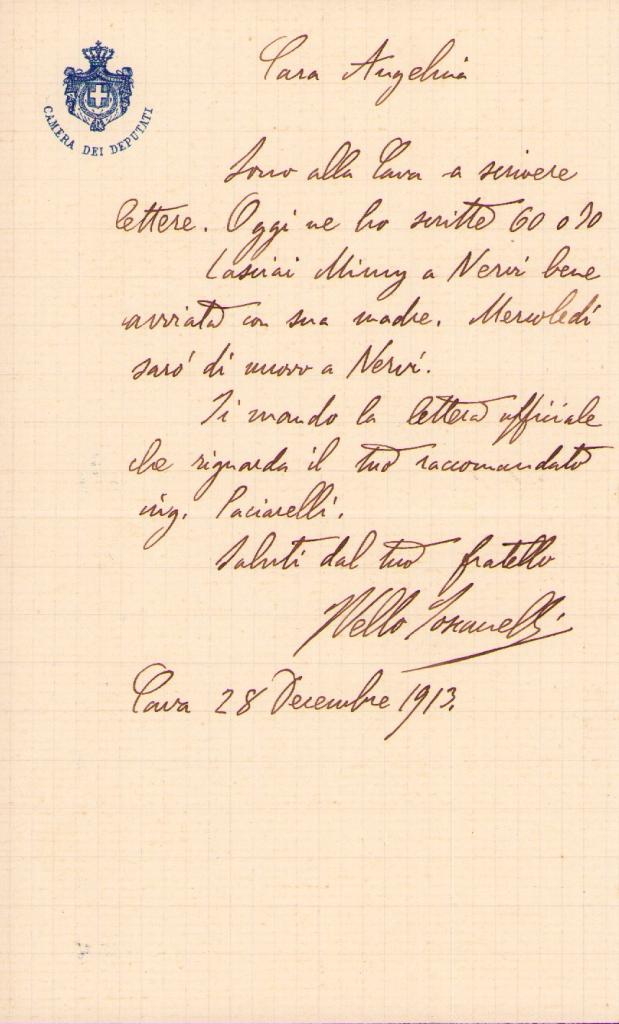 CAMERA DEI DEPUTATI
Cara Angelina
Sono alla Cava a scrivere
lettere. Oggi ne ho scritte 60 o 70
Lasciai Mimy a Nervi bene
avviata con sua madre. Mercoledì
sarò di nuovo a Nervi.
Ti mando la lettera ufficiale
che riguarda il tuo raccomandato
ing. Paciarelli.
Saluti dal tuo fratello
Nello Toscanelli
Cava 28 Decembre 1913.